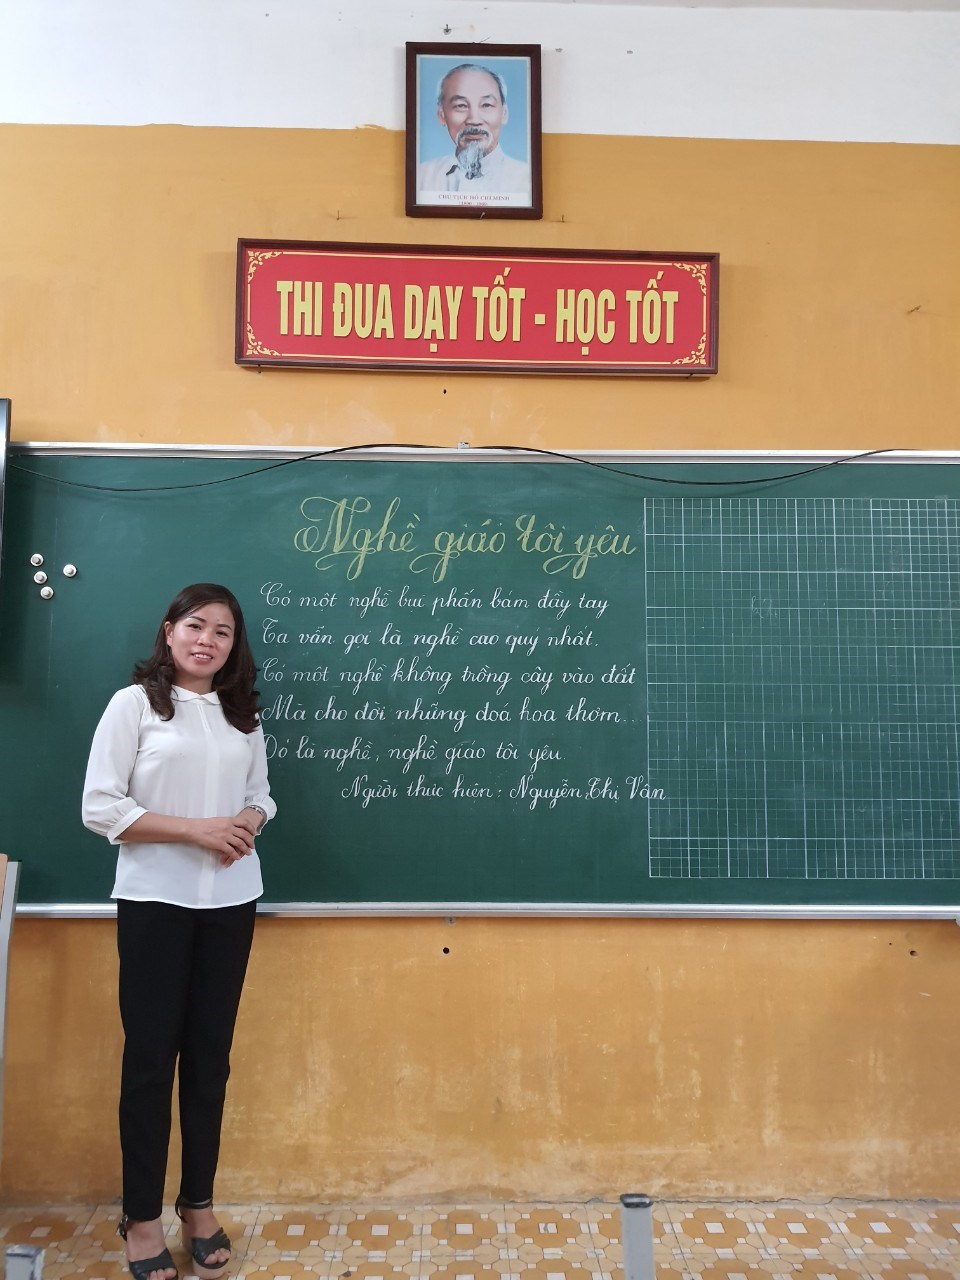 CHỦ TỊCH HỒ CHÍ MINH
(1890 - 1969)
THI ĐUA DẠY TỐT - HỌC TỐT
Nghề giáo tôi yêu
Có một nghề bụi phấn bám đầy tay
Ta vẫn gọi là nghề cao quý nhất.
Có một nghề không trồng cây vào đất
Mà cho đời những đoá hoa thơm...
Đó là nghề, nghề giáo tôi yêu.
Người thực hiện: Nguyễn Thị Vân